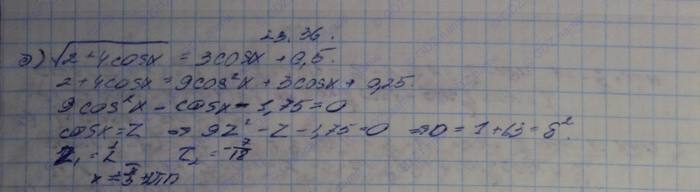 23.36.
а) √2+4cosx = 3cosx + 0,5.
2+4cosx = 9cos²x + 3cosx + 0,25
9cos²x - cosx - 1,75 = 0
cosx = Z ⇒ 9Z² - Z - 1,75 = 0 ⇒ D = 1 + 63 = 8².
Z₁ = 1/2 Z₂ = -7/18